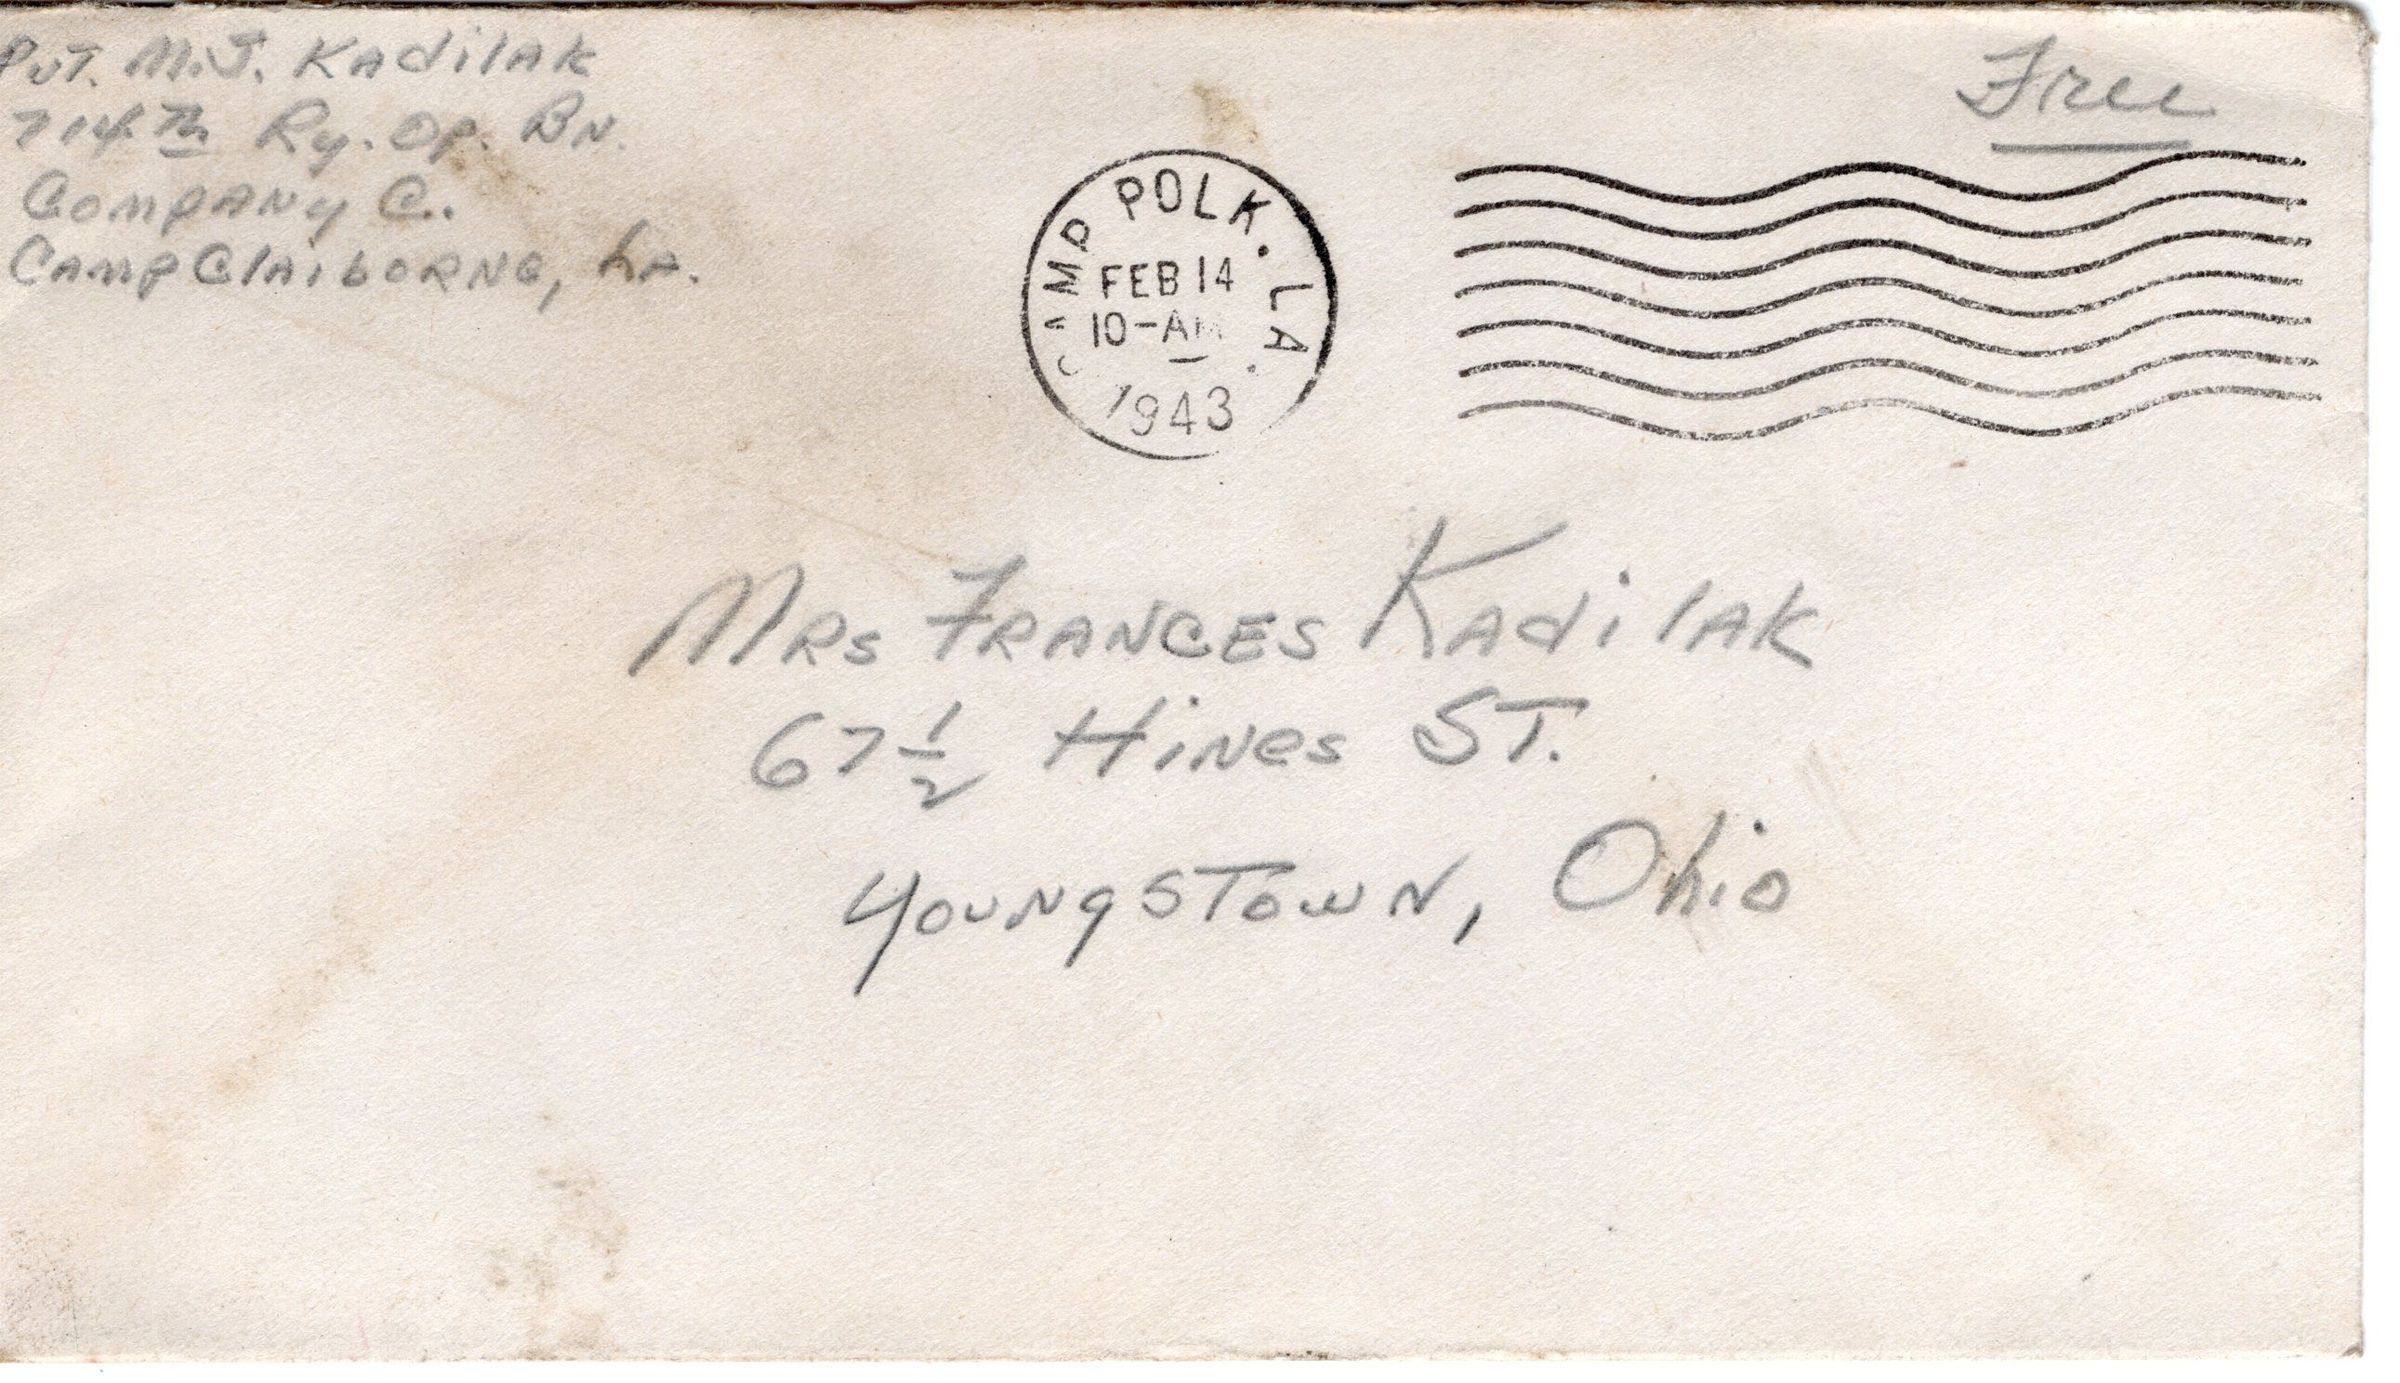 Pvt. M.J. Kadilak
714th Ry. Op. Bn.
Company C.
Camp Claiborne, La.
Free
CAMP POLK. LA.
FEB 14
10-AM
1943
Mrs Frances Kadilak
67 1/2 Hines St.
Youngstown, Ohio